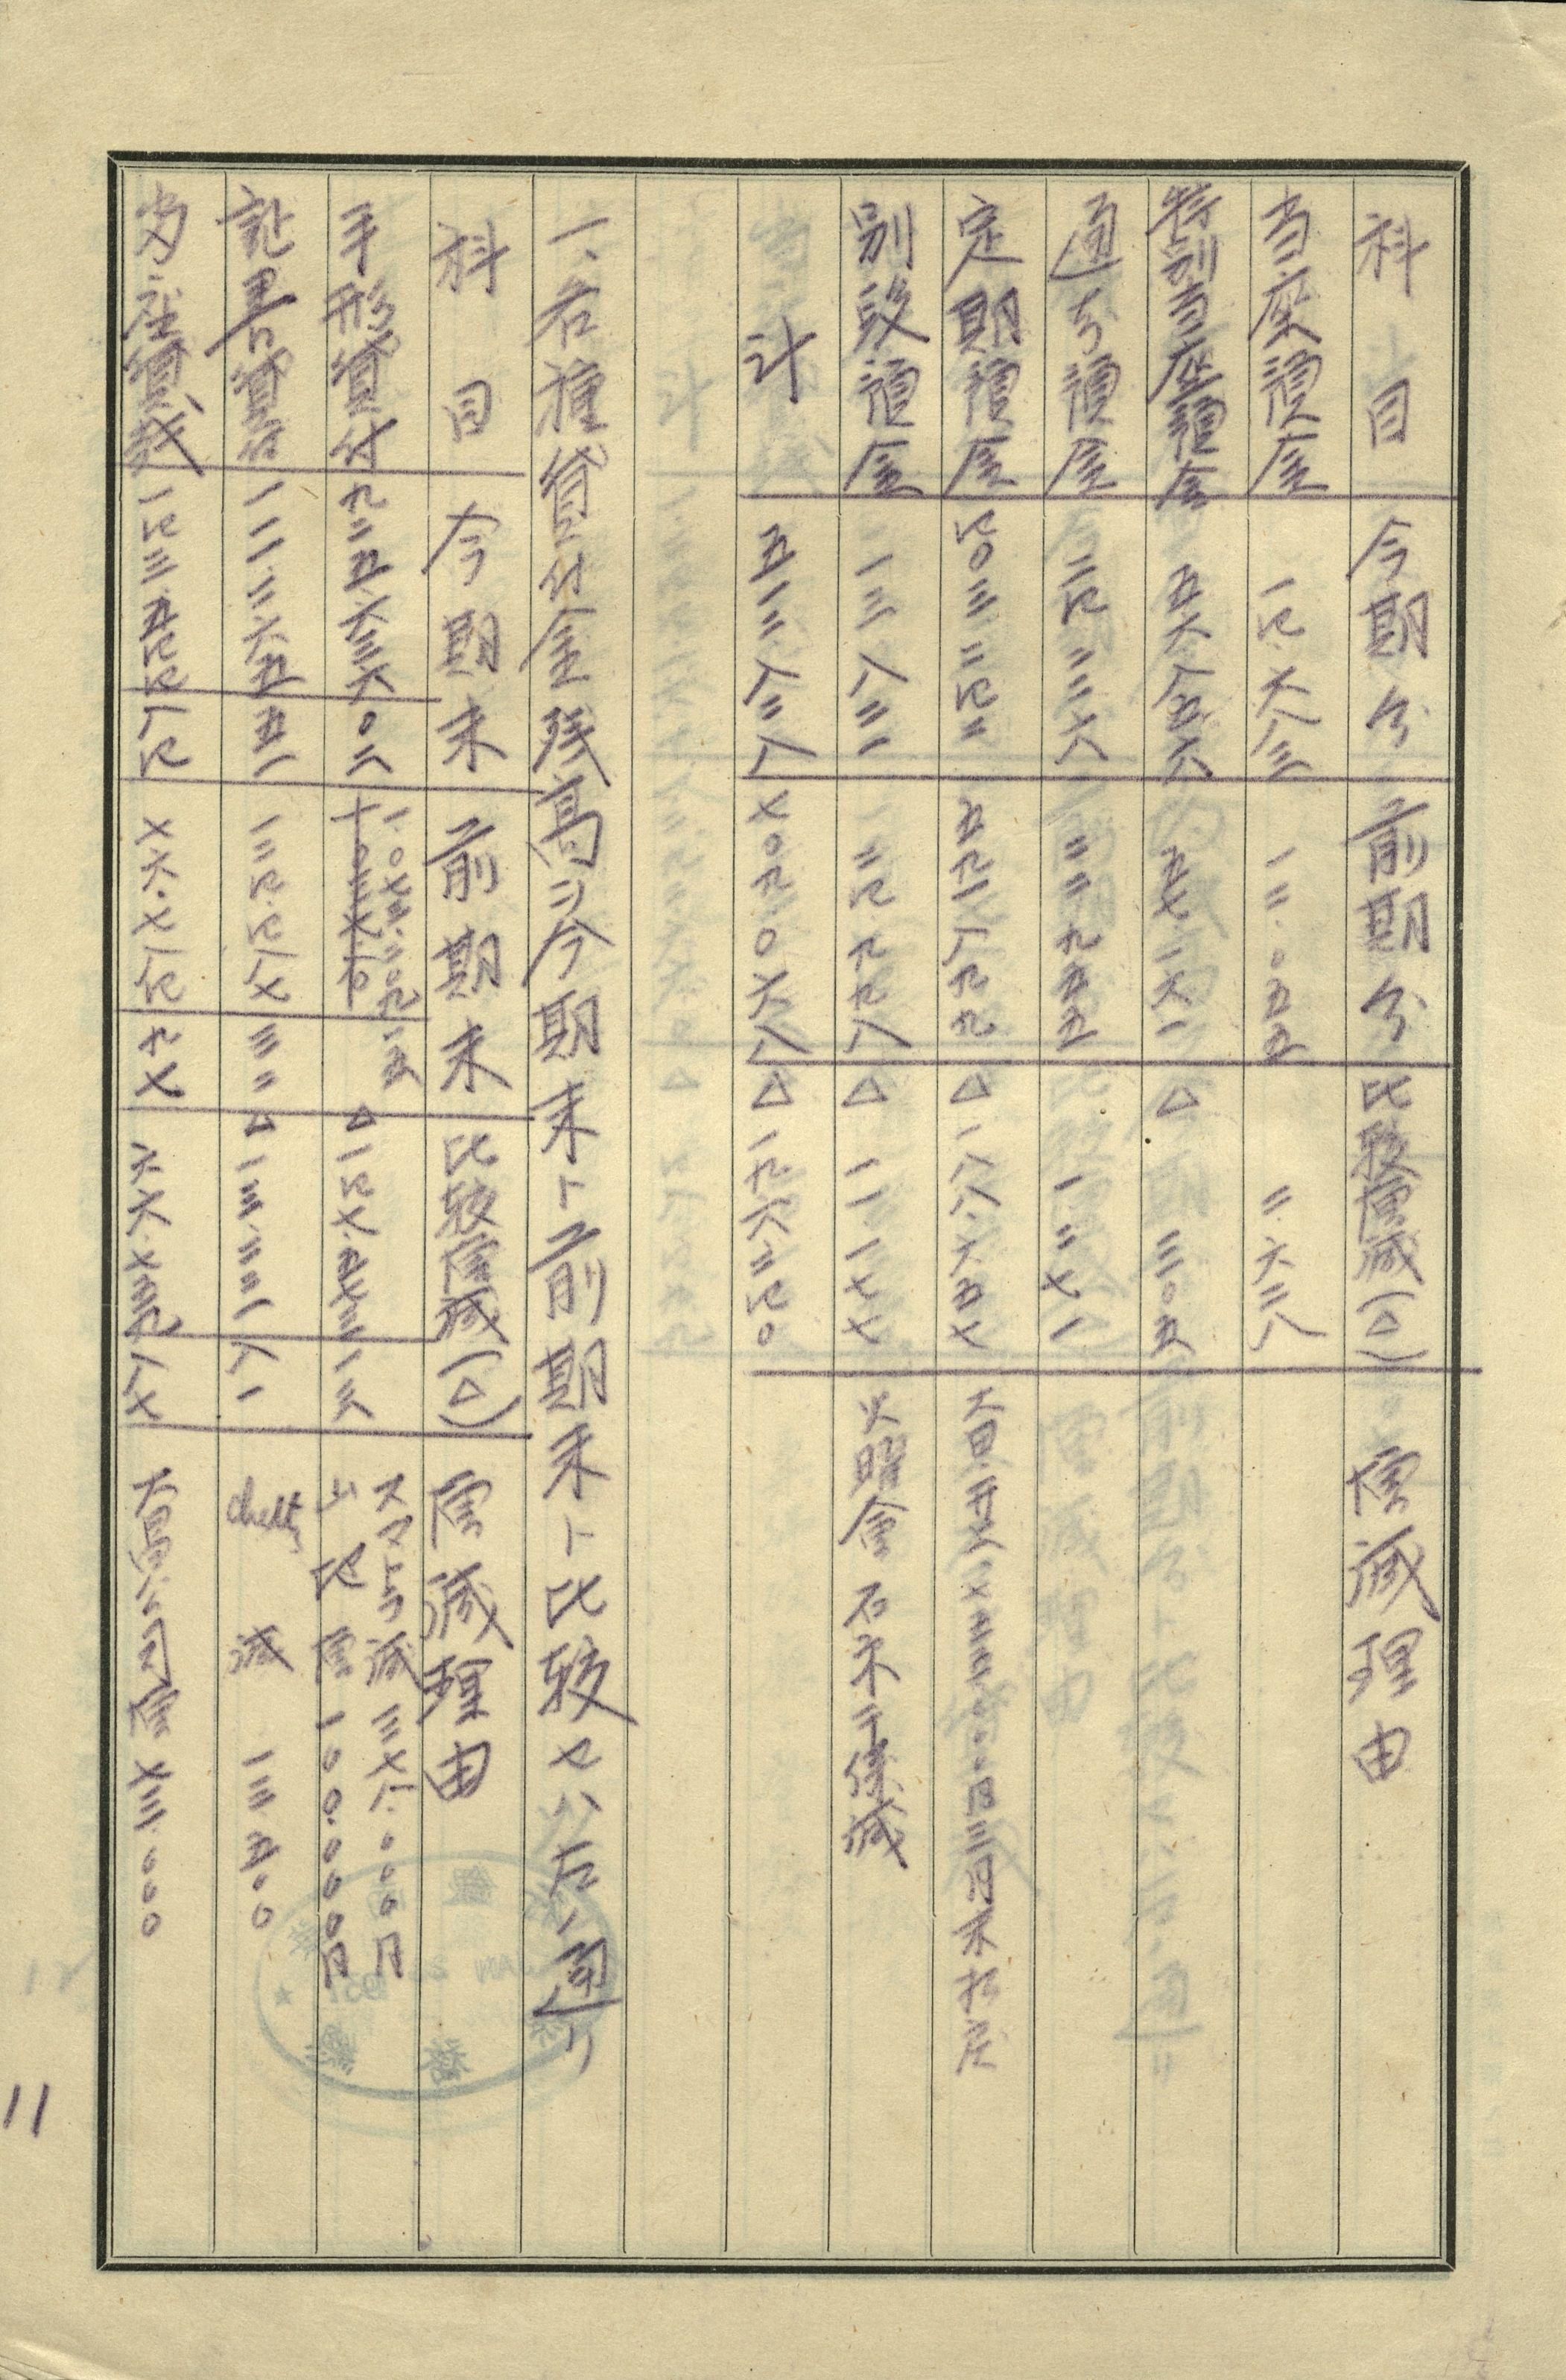 科目 今期分 前期分 比較増減(△) 増減理由
当座預金 一四、六八三 一二、〇五五 二、六二八
特別当座預金 五六、八五六 五七、一六一 △ 三〇五
通知預金 二四、二二六 二二、九五五 一、二七一
定期預金 四〇三、二四二 五九一、八九九 △ 一八八、六五七
別段預金 一三、八二一 二四、九九八 △ 一一、一七七 火曜会
計 五一二、八二八 七〇九、〇六八 △ 一九六、二四〇
一、各種貸付金残高ヲ今期末ト前期末ト比較セハ左ノ通リ
科目 今期末 前期末 比較増減(△) 増減理由
手形貸付 九二五、六三六 〇二 一、〇七三、二〇九 一五 △ 一四七、五七三 一三 スマトラ減 三七八、〇〇〇円
増 一〇〇、〇〇〇円
証書貸付 一一一、二六五 五一 一二四、四八七 三二 △ 一三、二二一 八一 chetty 減 一三、五〇〇
当座貸越 一四三、五四四 八四 七六、七八四 九七 六六、七五九 八七 公司増 七三、〇〇〇
11